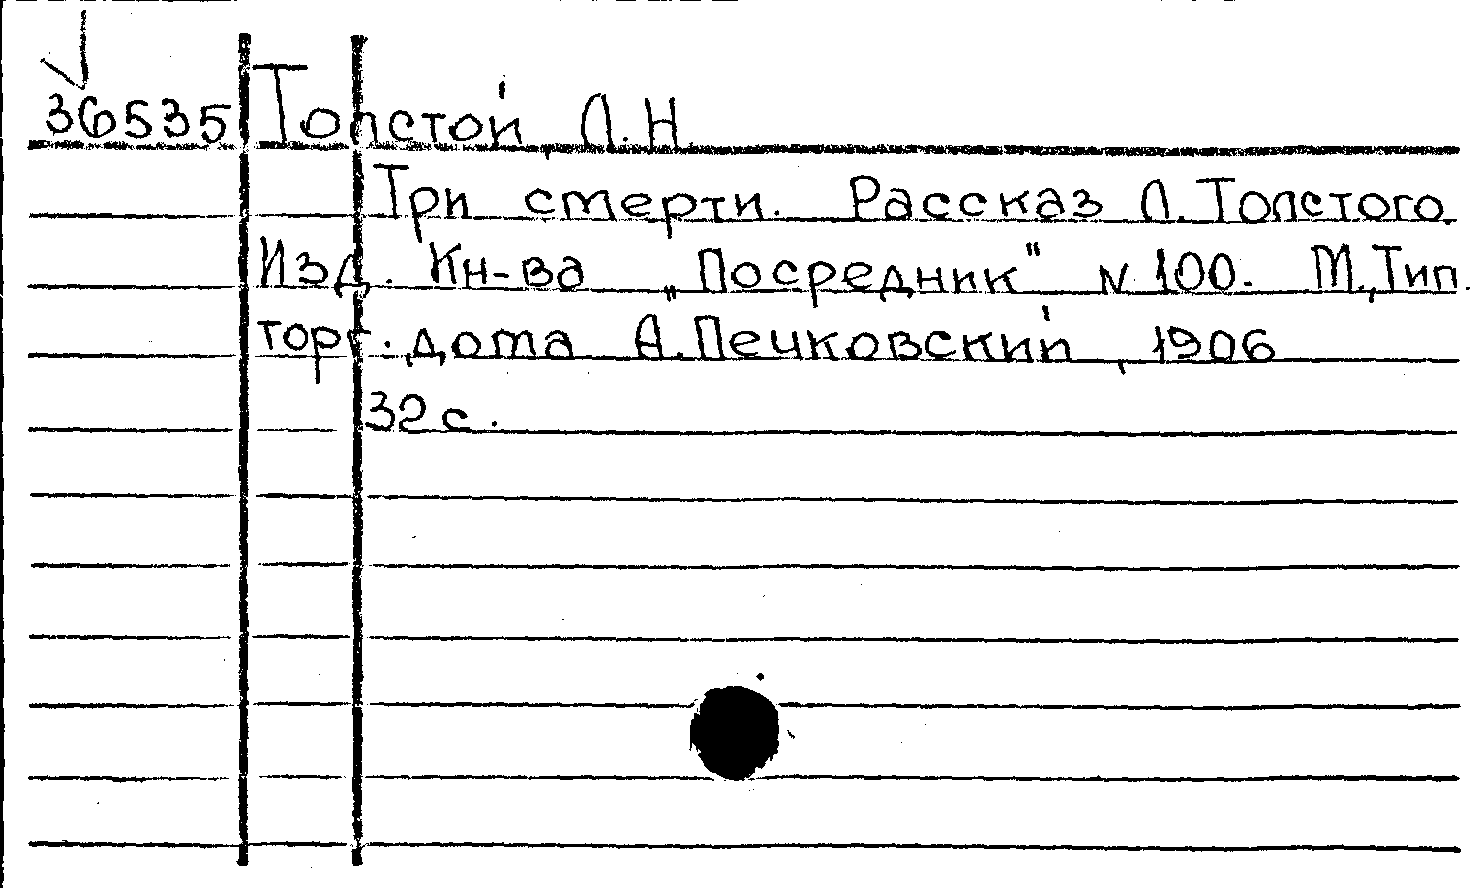 36535 Толстой, Л.Н.
Три смерти. Рассказ Л.Толстого.
Изд. Кн-ва „Посредник" N 100. М.,Тип.
торг. дома А.Печковский, 1906
32 с.